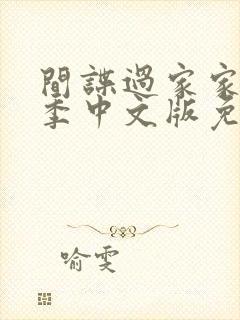 間諜過家家
季中文版免
喻雯